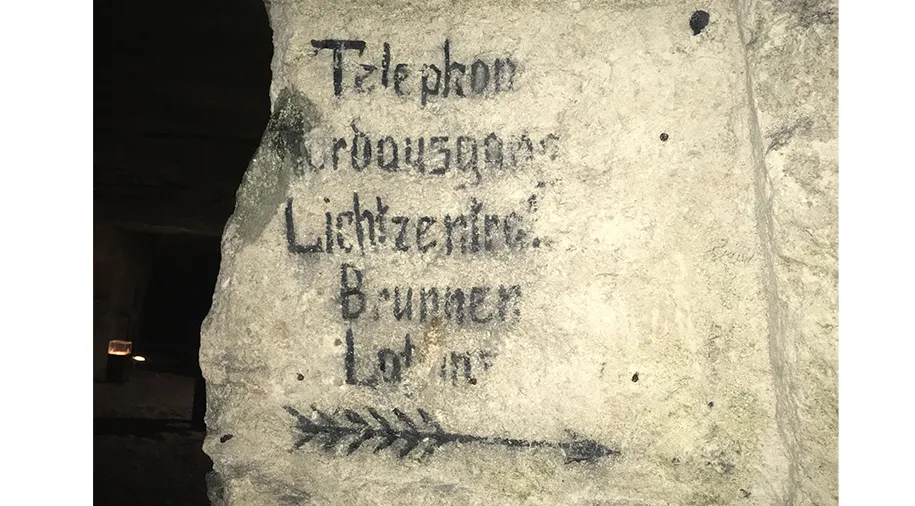 Telephon
Nordausgang
Lichtzentrale
Brunnen